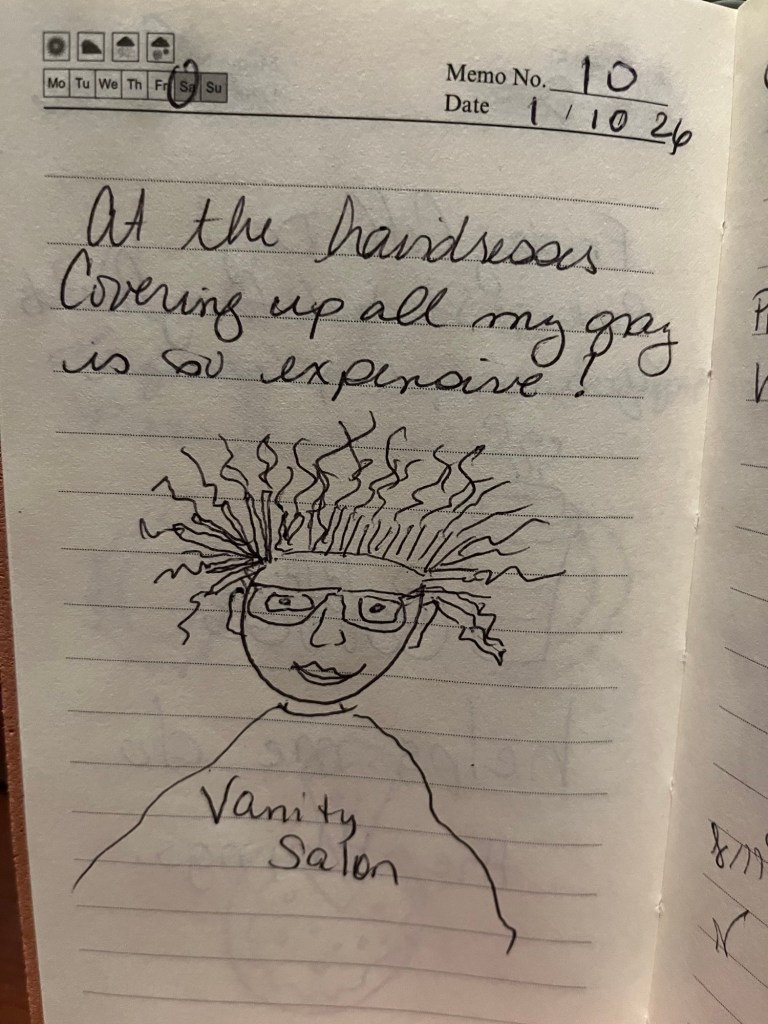 Mo Tu We Th Fr Sa Su
Memo No. 10
Date 1 / 10 26
At the hairdressers
Covering up all my gray
is so expensive!
Vanity
Salon